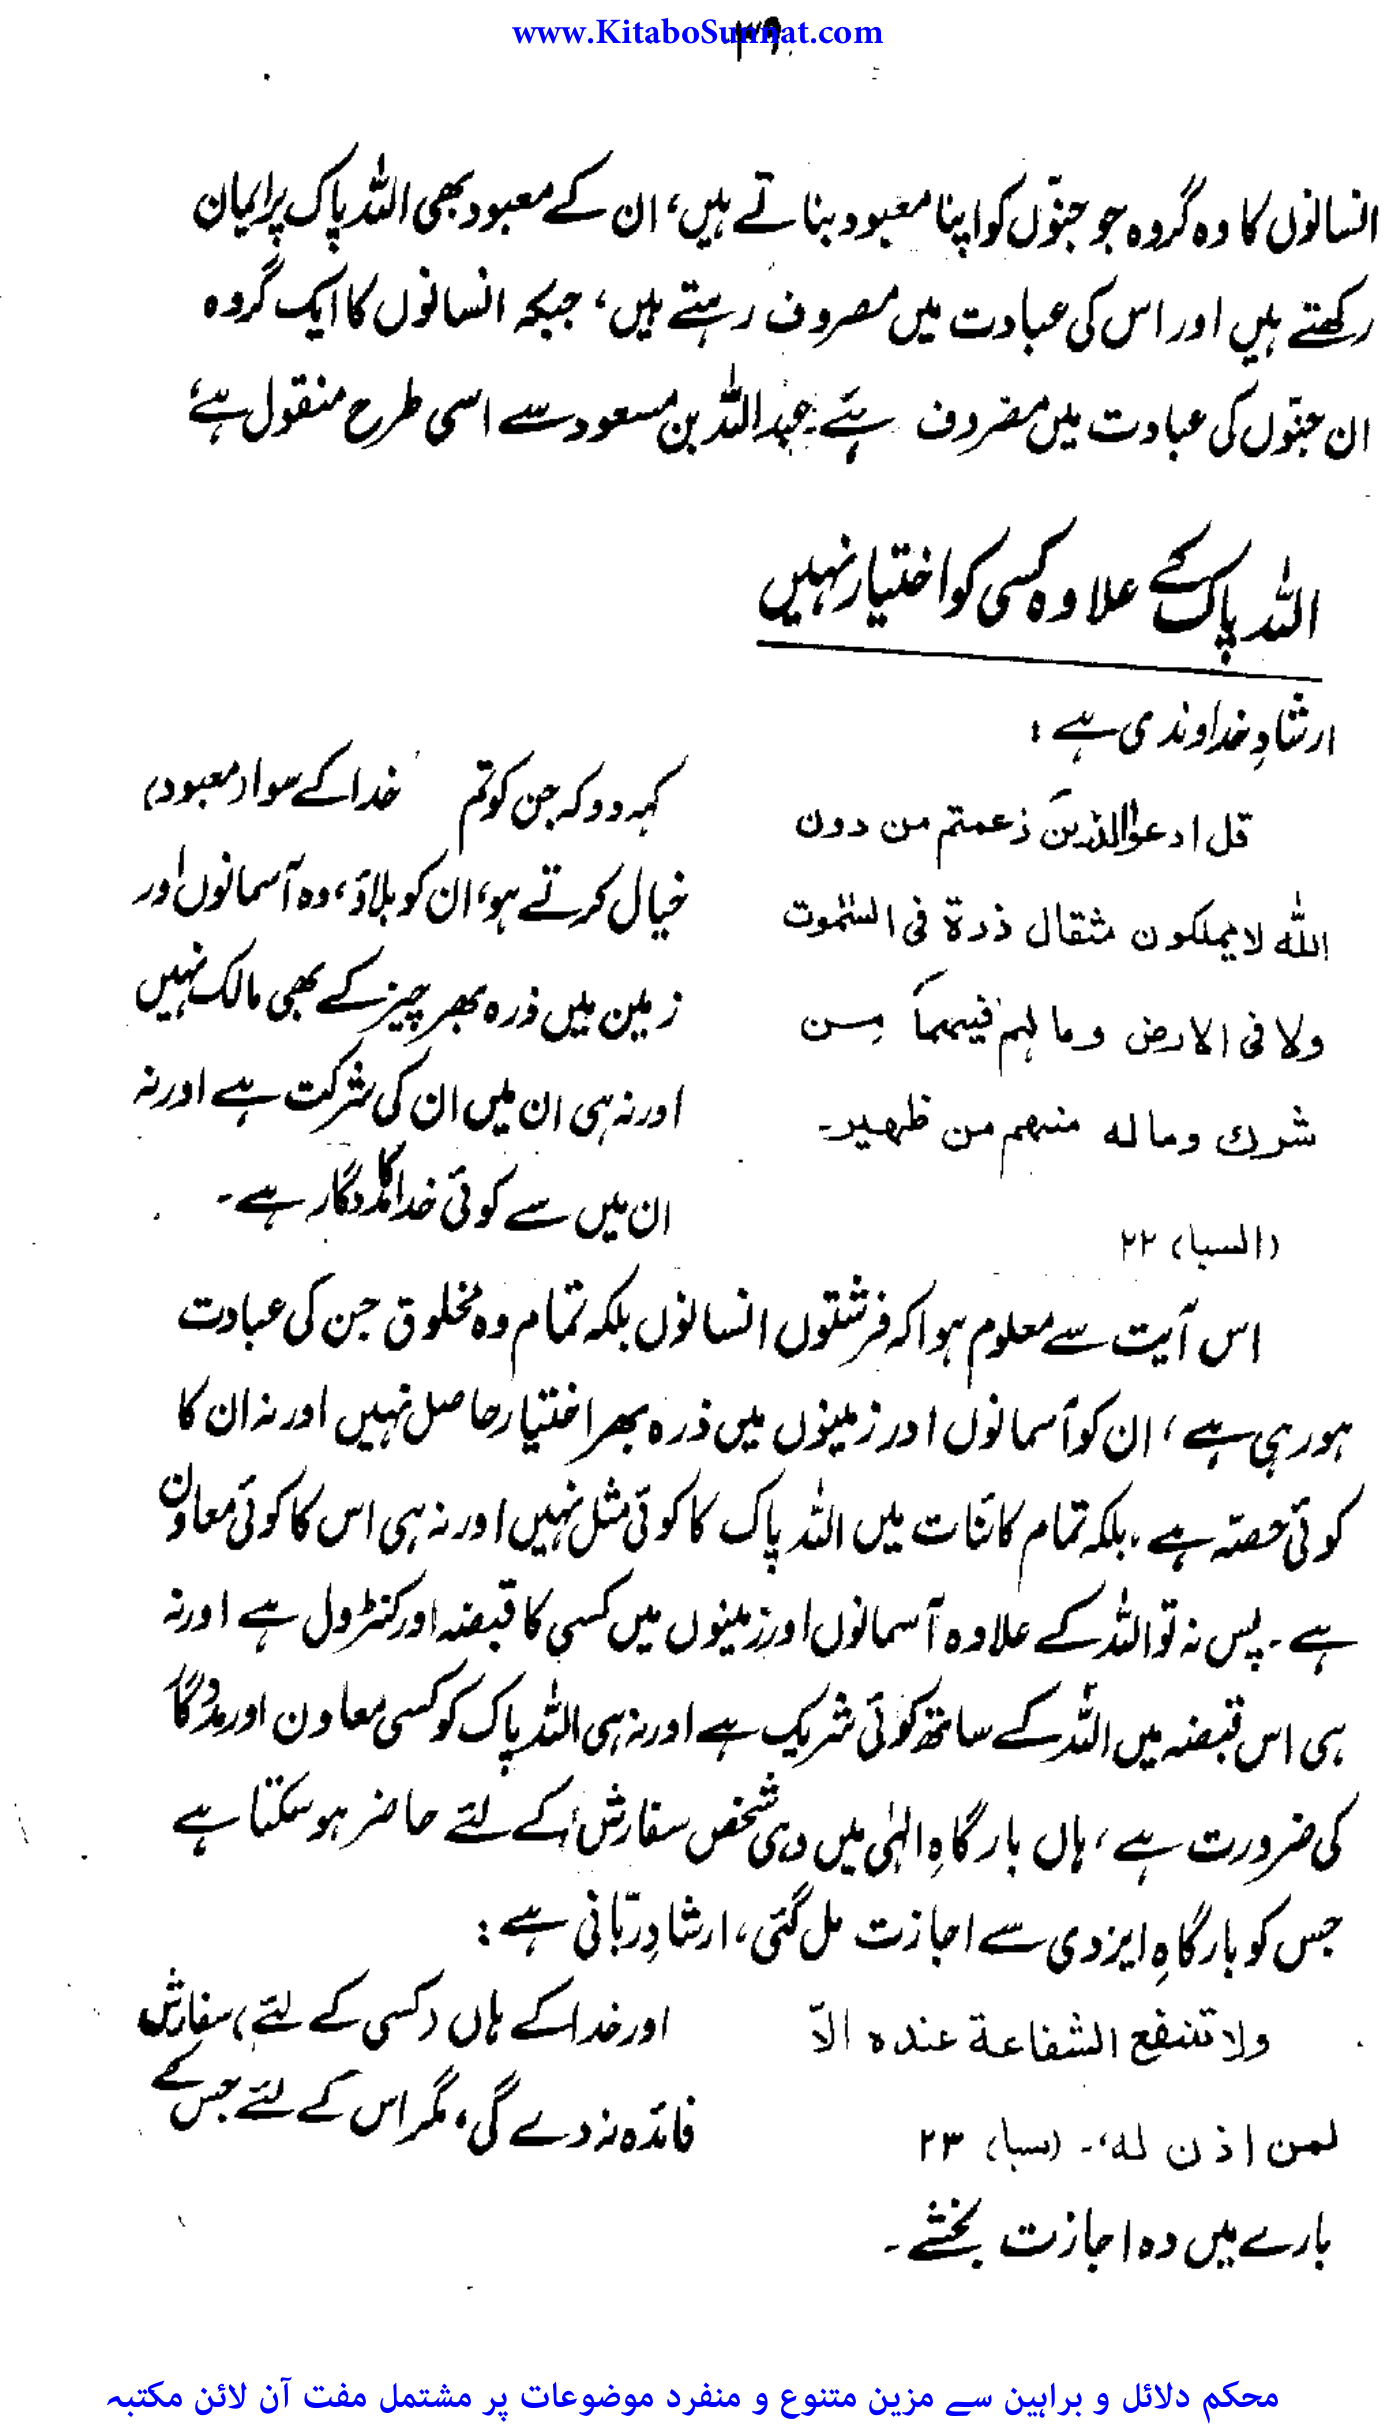 www.KitaboSunnat.com
۳۹
انسانوں کا وہ گروہ جو جنّوں کو اپنا معبود بناتے ہیں، ان کے معبود بھی اللہ پاک پر ایمان
رکھتے ہیں اور اس کی عبادت میں مصروف رہتے ہیں، جبکہ انسانوں کا ایک گروہ
ان جنّوں کی عبادت میں مصروف ہے۔ عبداللہ بن مسعود سے اسی طرح منقول ہے
اللہ پاک کے علاوہ کسی کو اختیار نہیں
ارشادِ خداوندی ہے :
قل ادعوا الذین زعمتم من دون
اللہ لا یملکون مثقال ذرة فی السمٰوت
ولا فی الارض وما لہم فیہما من
شرك وماله منهم من ظهیر۔
(السبا) ۲۲
کہہ دو کہ جن کو تم خدا کے سوا (معبود)
خیال کرتے ہو، ان کو بلاؤ، وہ آسمانوں اور
زمین میں ذرہ بھر چیز کے بھی مالک نہیں
اور نہ ہی ان میں ان کی شرکت ہے اور نہ
ان میں سے کوئی خدا کا مددگار ہے۔
اس آیت سے معلوم ہوا کہ فرشتوں انسانوں بلکہ تمام وہ مخلوق جن کی عبادت
ہو رہی ہے، ان کو آسمانوں اور زمینوں میں ذرہ بھر اختیار حاصل نہیں اور نہ ان کا
کوئی حصّہ ہے، بلکہ تمام کائنات میں اللہ پاک کا کوئی مثل نہیں اور نہ ہی اس کا کوئی معاون
ہے۔ پس نہ تو اللہ کے علاوہ آسمانوں اور زمینوں میں کسی کا قبضہ اور کنٹرول ہے اور نہ
ہی اس قبضہ میں اللہ کے ساتھ کوئی شریک ہے اور نہ ہی اللہ پاک کو کسی معاون اور مددگار
کی ضرورت ہے، ہاں بارگاہِ الٰہی میں وہی شخص سفارش کے لئے حاضر ہو سکتا ہے
جس کو بارگاہِ ایزدی سے اجازت مل گئی، ارشادِ ربّانی ہے :
ولا تنفع الشفاعة عنده الاّ
لمن اذن له،۔ (سبا) ۲۳
اور خدا کے ہاں (کسی کے لئے) سفارش
فائدہ نہ دے گی، مگر اس کے لئے جس کے
بارے میں وہ اجازت بخشے۔
محکم دلائل و براہین سے مزین متنوع و منفرد موضوعات پر مشتمل مفت آن لائن مکتبہ